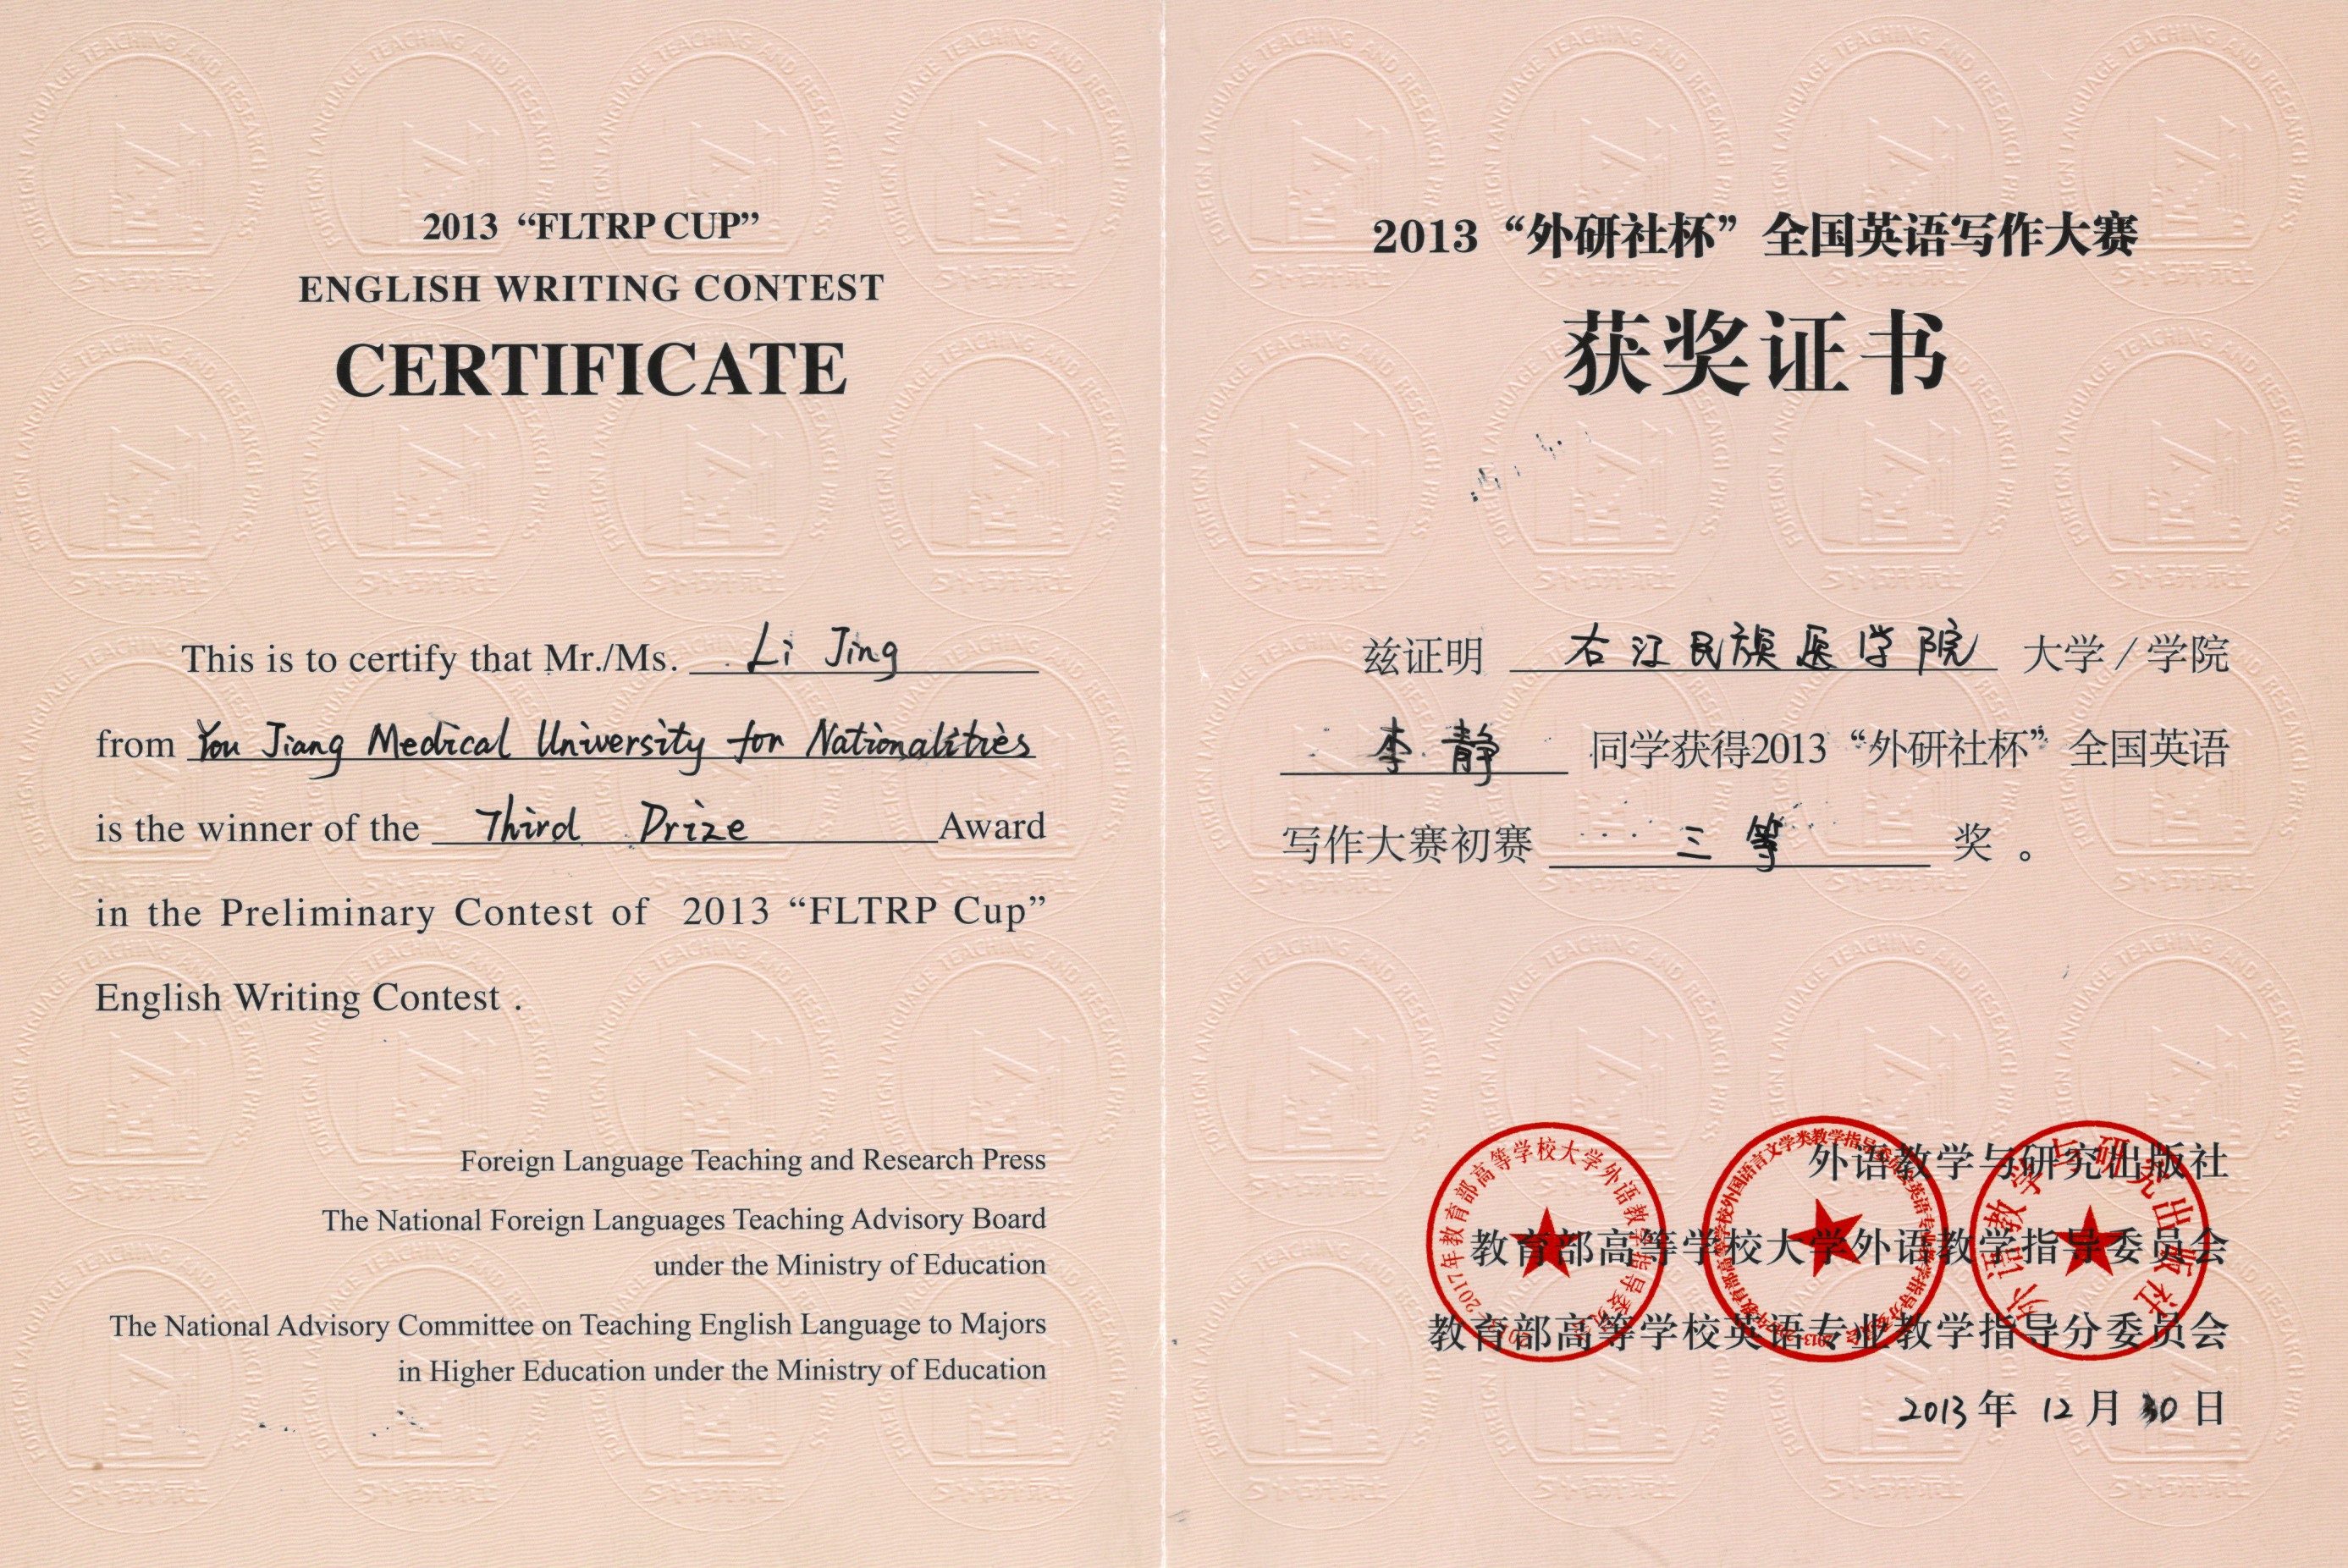 2013 “FLTRP CUP”
ENGLISH WRITING CONTEST
CERTIFICATE
This is to certify that Mr./Ms. Li Jing
from You Jiang Medical University for Nationalities
is the winner of the Third Prize Award
in the Preliminary Contest of 2013 “FLTRP Cup”
English Writing Contest .
Foreign Language Teaching and Research Press
The National Foreign Languages Teaching Advisory Board
under the Ministry of Education
The National Advisory Committee on Teaching English Language to Majors
in Higher Education under the Ministry of Education
2013“外研社杯”全国英语写作大赛
获奖证书
兹证明 右江民族医学院 大学/学院
李静 同学获得2013“外研社杯”全国英语
写作大赛初赛 三等 奖。
外语教学与研究出版社
教育部高等学校大学外语教学指导委员会
教育部高等学校英语专业教学指导分委员会
2013年12月30日
教育部高等学校大学外语教学指导委员会
外语教学与研究出版社
FOREIGN LANGUAGE TEACHING AND RESEARCH PRESS
外研社